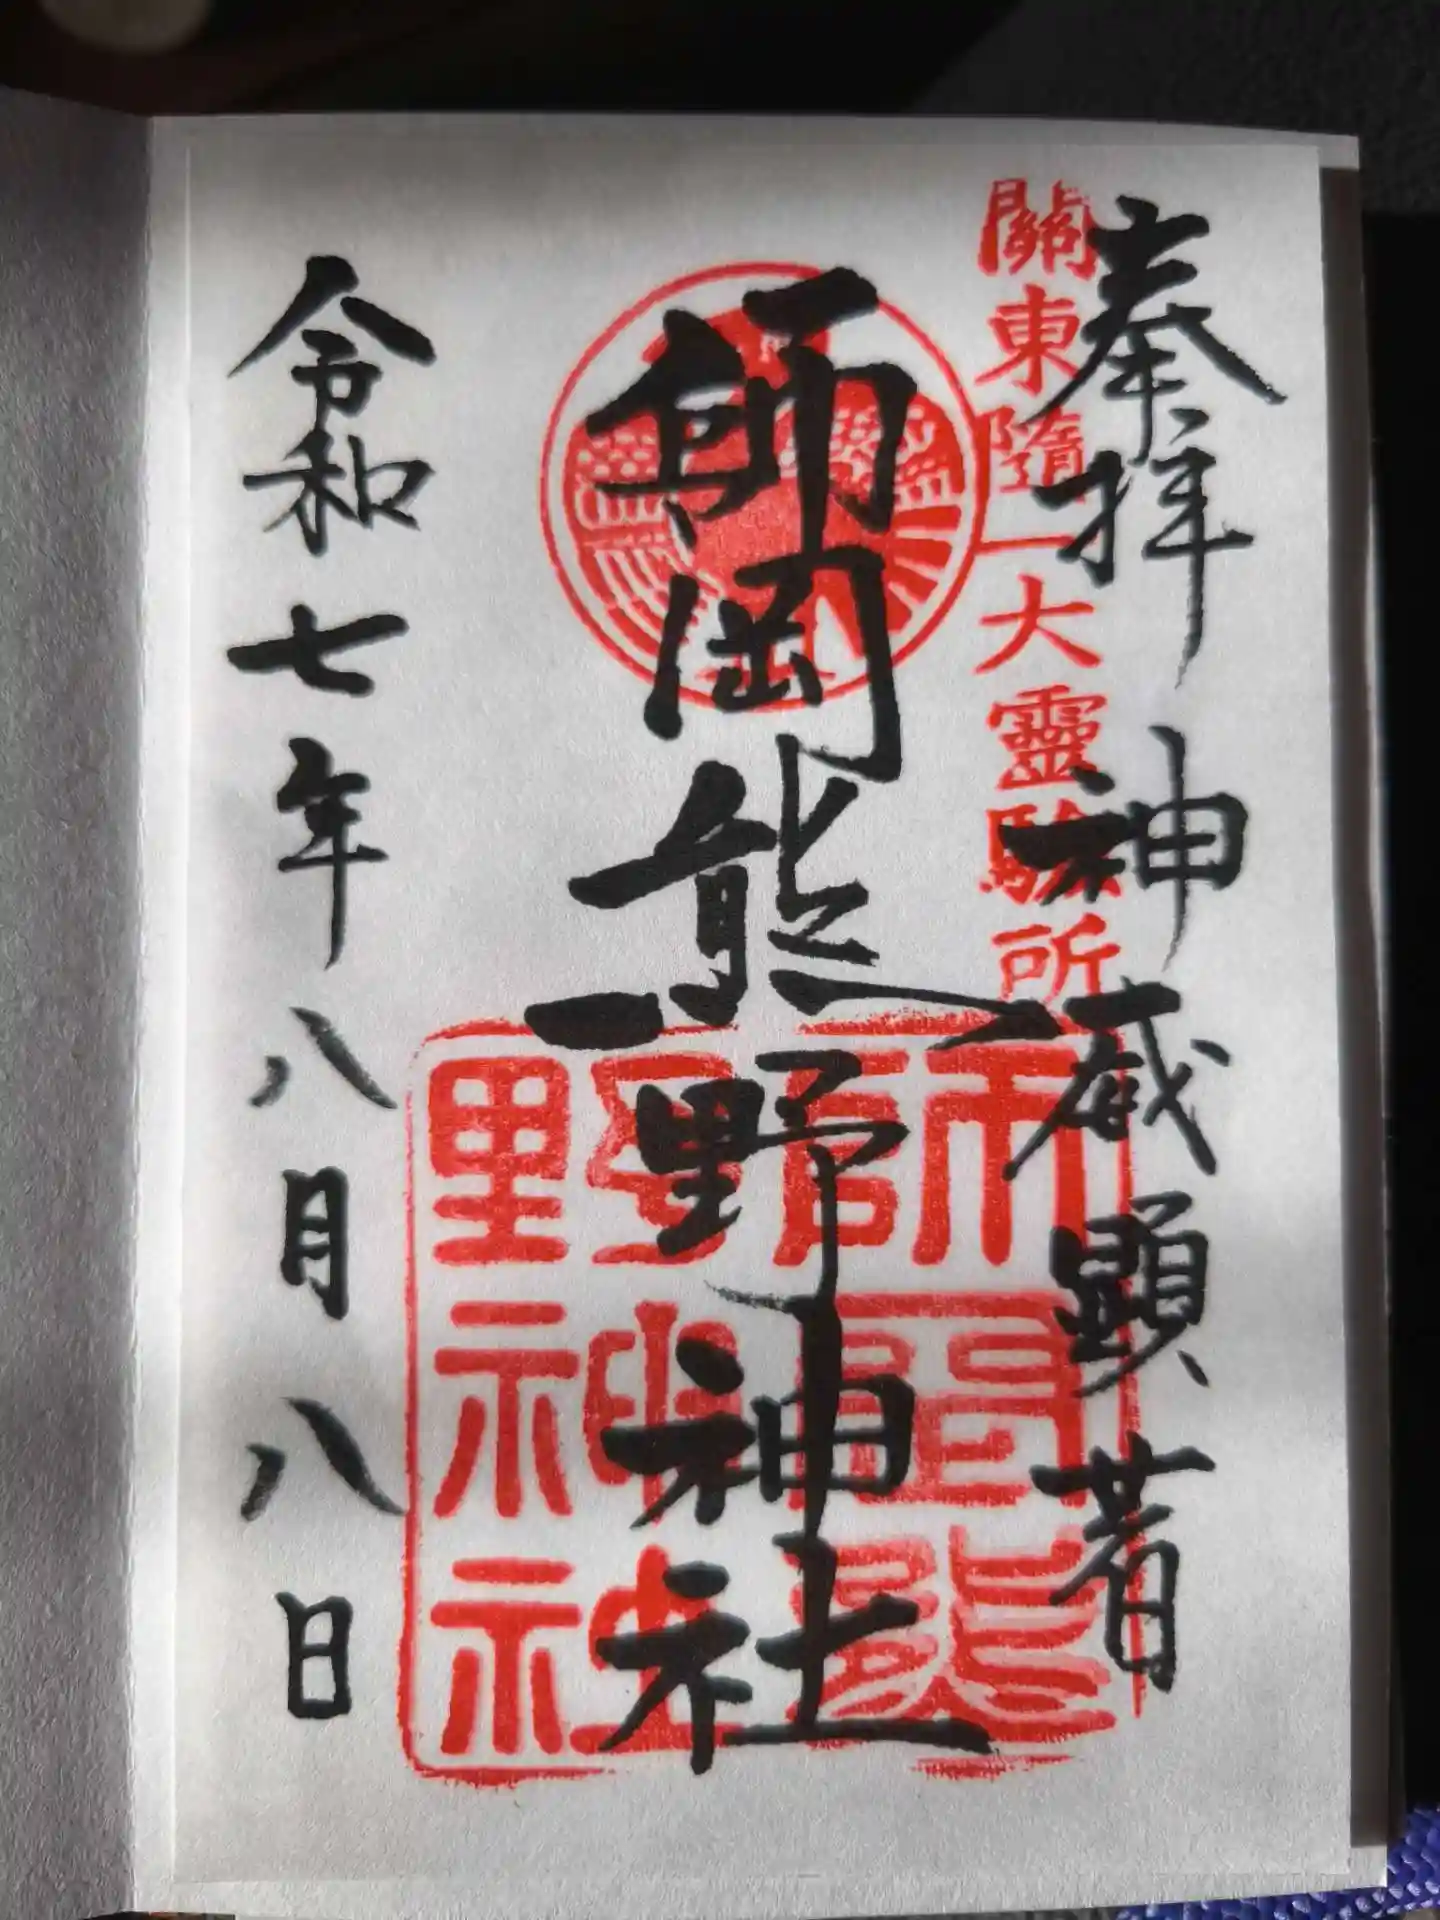 奉拝 神威顕著
關東隨一大靈驗所
師岡熊野神社
師岡熊野神社
令和七年八月八日